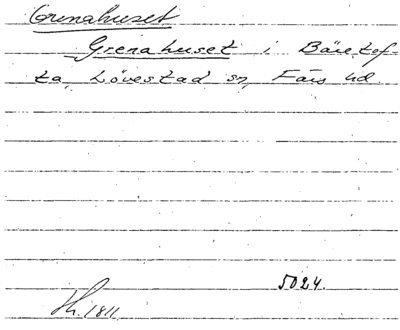 Grenahuset
Grenahuset i Bäretof-
ta, Lövestad sn, Färs hd.
5024.
Hh. 1811